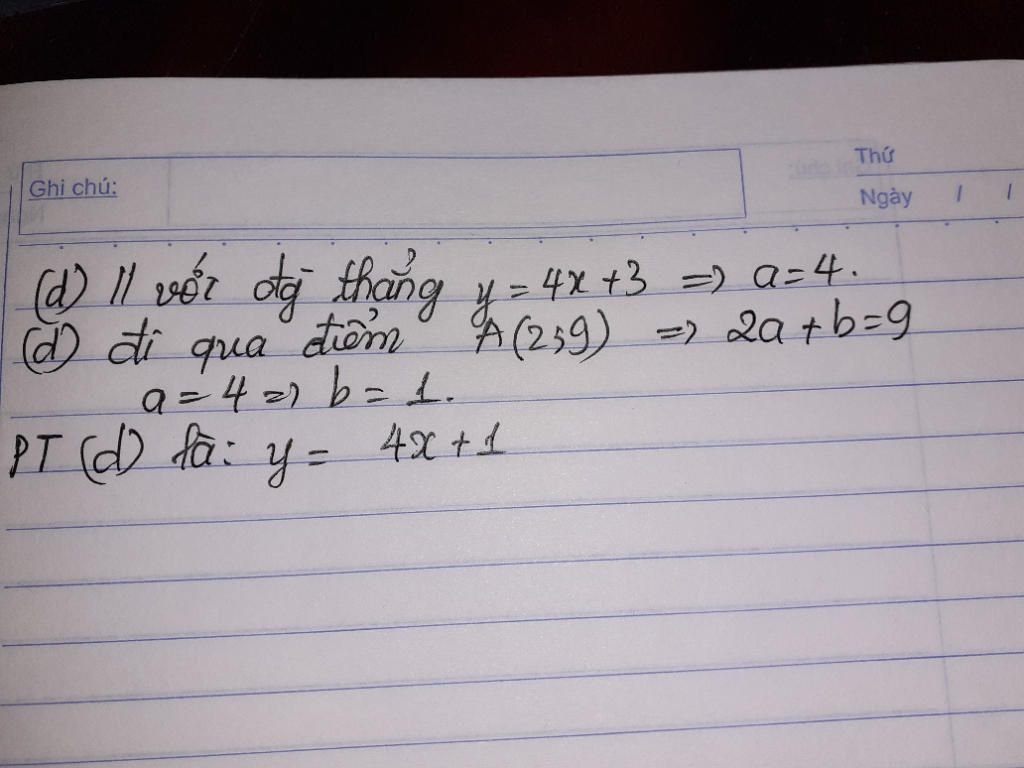 Thứ
Ghi chú:
Ngày / /
(d) // với đtg thẳng y = 4x + 3 => a = 4.
(d) đi qua điểm A(2;9) => 2a + b = 9
a = 4 => b = 1.
PT (d) là: y = 4x + 1